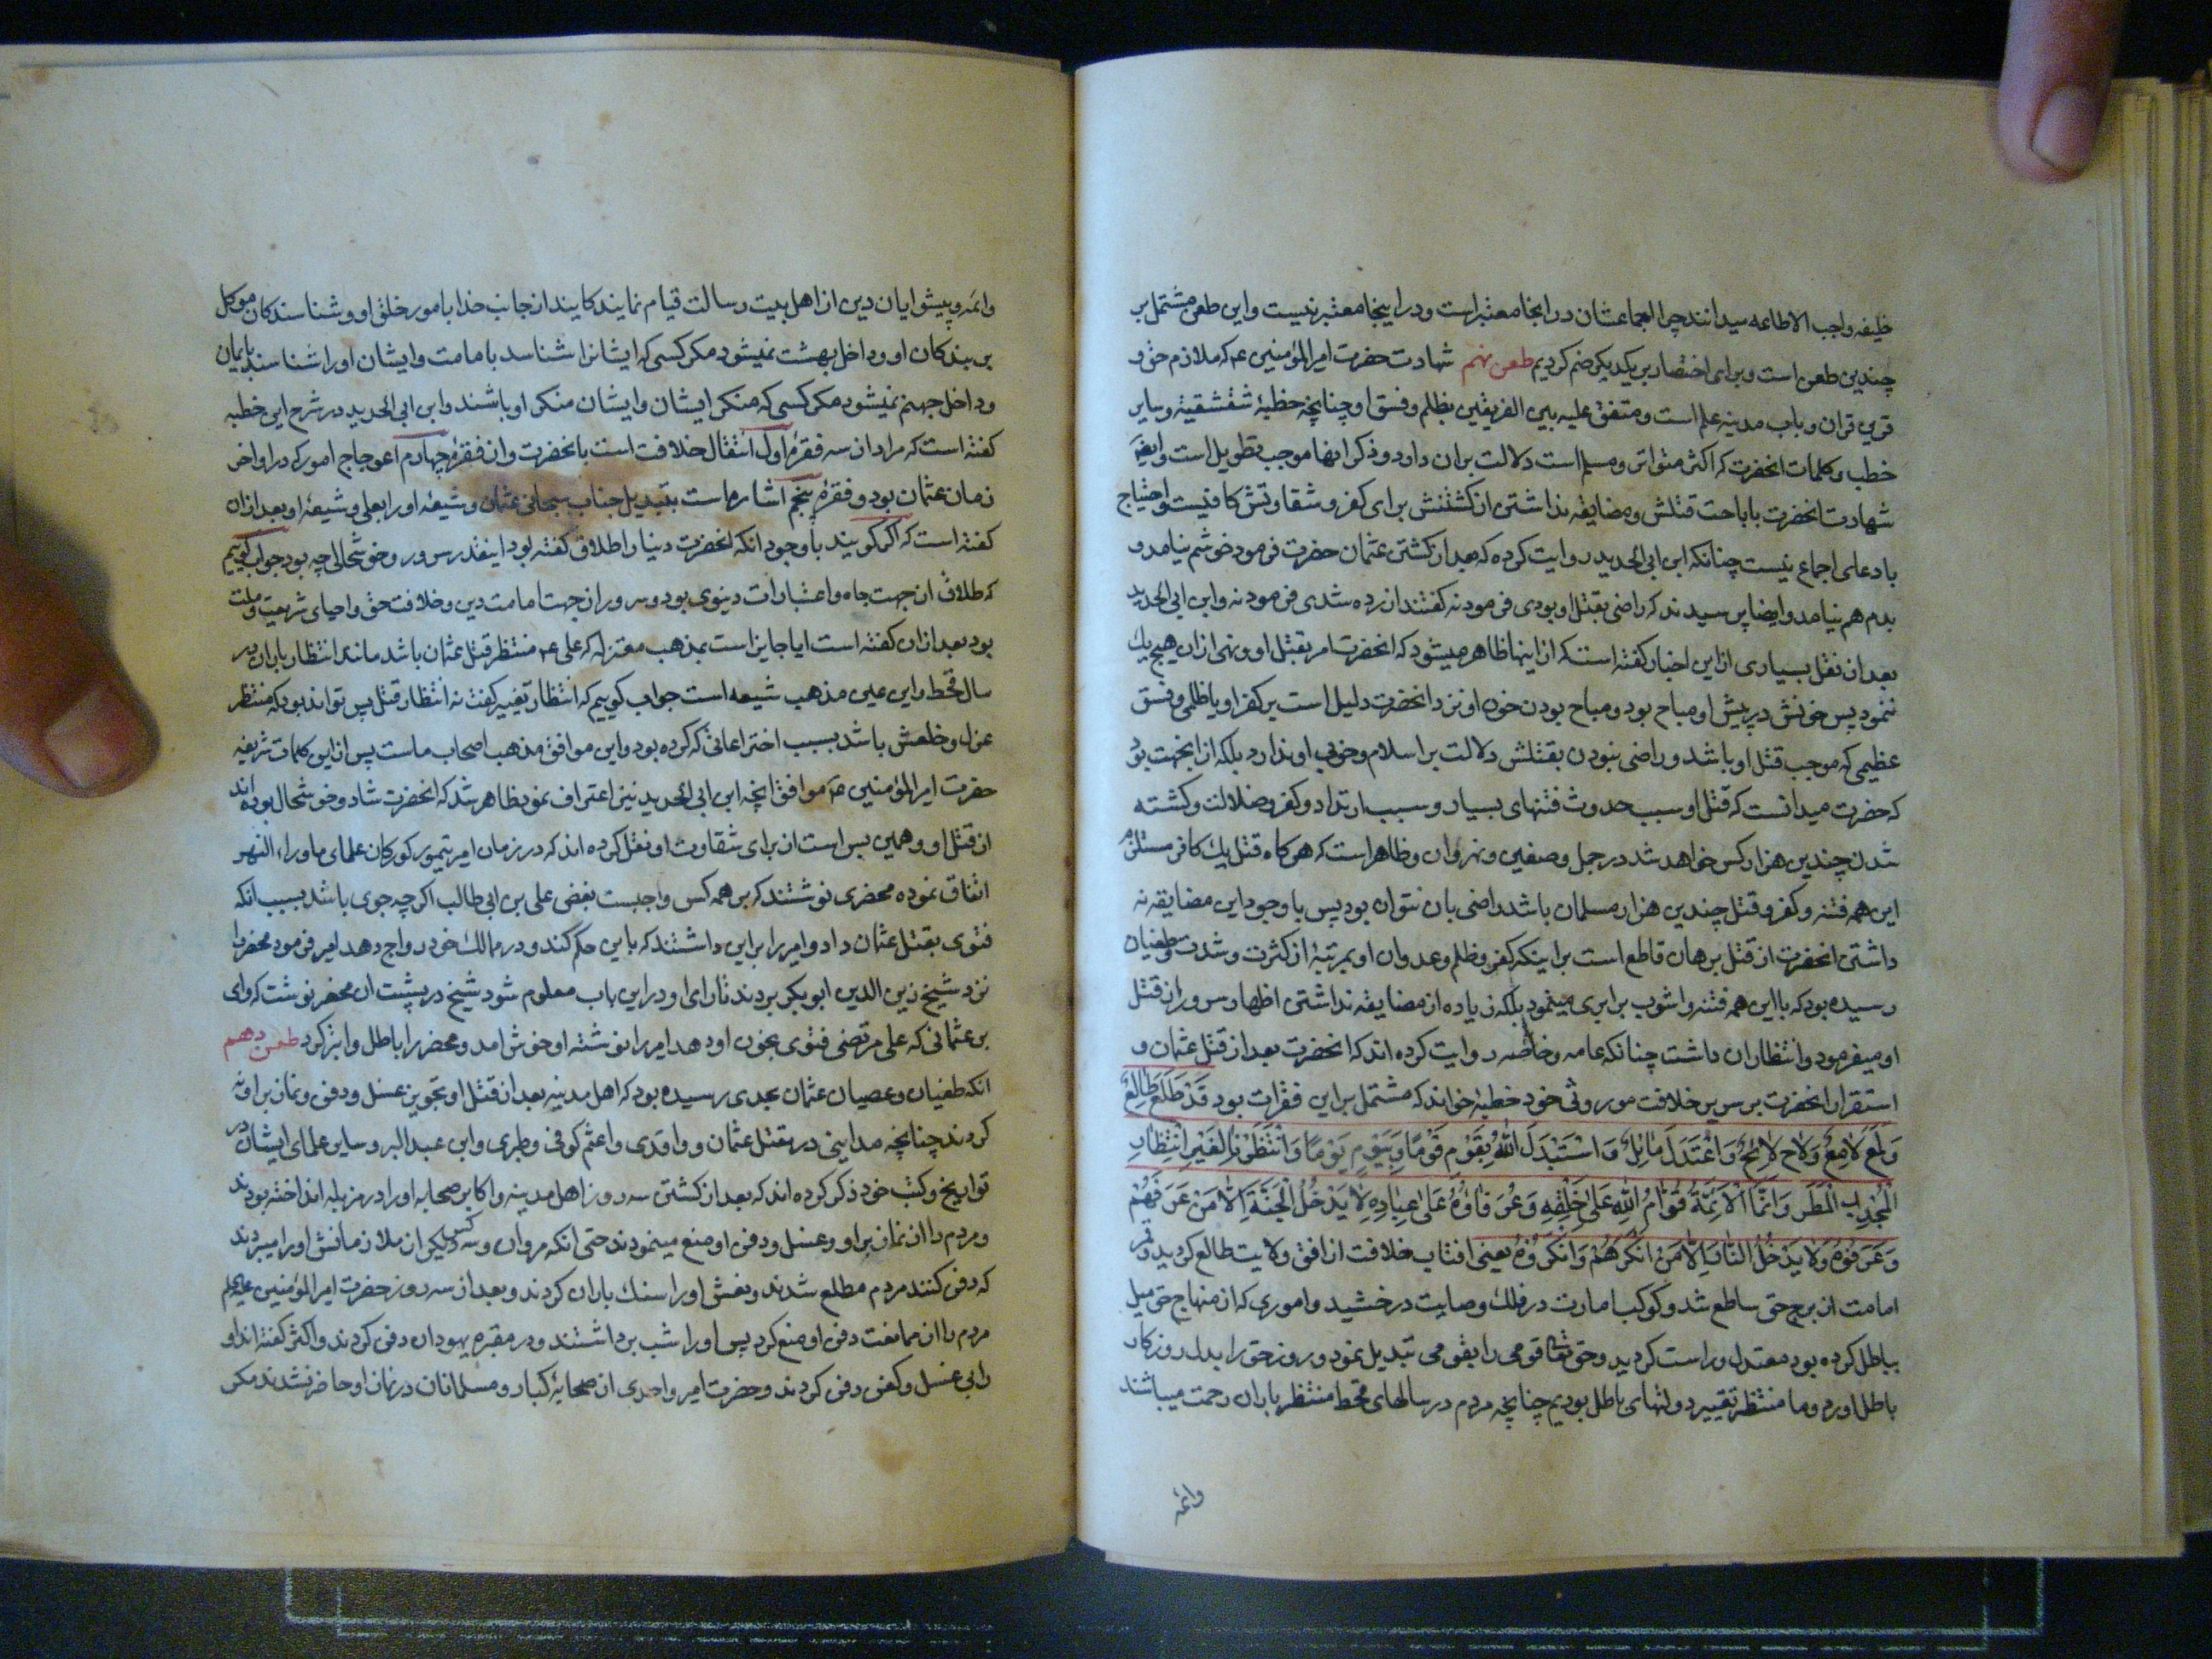 خلیفه واجب الاطاعه میدانند چرا اجماعشان در انجا معتبر است و در اینجا معتبر نیست و این طعن مشتمل بر
چندین طعن است و برای اختصار بر یکدیکر ضم کردیم طعن نهم شهادت حضرت امیر المؤمنین ع که ملازم حق و
قرین قران و باب مدینه علم است و متفق علیه بین الفریقین بظلم و فسق او چنانچه خطبهٔ شقشقیّه و سایر
خطب و کلمات انحضرت که اکثر متواتر و مسلم است دلالت بران دارد و ذکر انها موجب تطویل است و ایضا
شهادت انحضرت باباحت قتلش و مضایقه نداشتن از کشتنش برای کفر و شقاوتش کافیست و احتیاج
بادعای اجماع نیست چنانکه ابن ابی الحدید روایت کرده که بعد از کشتن عثمان حضرت فرمود خوشم نیامد و
بدم هم نیامد و ایضا پرسیدند که راضی بقتل او بودی فرمود نه کفتند ازرده شدی فرمود نه و ابن ابی الحدید
بعد از نقل بسیاری از این اخبار کفته است که از اینها ظاهر میشود که انحضرت امر بقتل او و نهی ازان هیچ یک
ننمود پس خونش در پیش او مباح بود و مباح بودن خون او نزد انحضرت دلیل است بر کفر او یا ظلمی و فسق
عظیمی که موجب قتل او باشد و راضی نبودن بقتلش دلالت بر اسلام و خوبی او ندارد بلکه از اینجهت بود
که حضرت میدانست که قتل او سبب حدوث فتنهای بسیار و سبب ارتداد و کفر و ضلالت و کشته
شدن چندین هزار کس خواهد شد در جمل و صفین و نهروان و ظاهر است که هر کاه قتل یک کافر مستلزم
این همه فتنه و کفر و قتل چندین هزار مسلمان باشد راضی بان نتوان بود پس با وجود این مضایقه نه
داشتن انحضرت از قتل برهان قاطع است بر اینکه کفر و ظلم و عدوان او بمرتبهٔ از کثرت و شدت و طغیان
رسیده بود که با این همه فتنه و اشوب برابری مینمود بلکه زیاده از مضایقه نداشتن اظهار سرور از قتل
او میفرمود و انتظار ان داشت چنانکه عامه و خاصّه روایت کرده اند که انحضرت بعد از قتل عثمان و
استقرار انحضرت بر سریر خلافت موروثی خود خطبهٔ خواند که مشتمل بر این فقرات بود قَدْ طَلَعَ طَالِعٌ
وَلَمَعَ لَامِعٌ وَلَاحَ لَائِحٌ وَاعْتَدَلَ مَائِلٌ وَاسْتَبْدَلَ اللّٰهُ بِقَوْمٍ قَوْمًا وَبِیَوْمٍ یَوْمًا وَانْتَظَرْنَا الْغِیَرَ انْتِظَارَ
الْمُجْدِبِ الْمَطَرَ وَاِنَّمَا الْاَئِمَّةُ قُوَّامُ اللّٰهِ عَلٰی خَلْقِهِ وَعُرَفَاؤُهُ عَلٰی عِبَادِهِ لَا یَدْخُلُ الْجَنَّةَ اِلَّا مَنْ عَرَفَهُمْ
وَعَرَفُوهُ وَلَا یَدْخُلُ النَّارَ اِلَّا مَنْ اَنْکَرَهُمْ وَاَنْکَرُوهُ یعنی افتاب خلافت از افق ولایت طالع کردید و قمر
امامت از برج حق ساطع شد و کوکب امارت در فلک وصایت درخشید و اموری که از منهاج حق میل
بباطل کرده بود معتدل و راست کردید و حق تعالی قومی را بقومی تبدیل نمود و روز حق را بدل روزکار
باطل اورد و ما منتظر تغییر دولتهای باطل بودیم چنانچه مردم در سالهای قحط منتظر باران رحمت میباشند
وائمه
وائمه و پیشوایان دین از اهل بیت رسالت قیام نمایندکانند از جانب خدا بامور خلق او و شناسندکان موکل
بر بندکان او و داخل بهشت نمیشود مکر کسی که ایشانرا شناسد بامامت و ایشان او را شناسند بایمان
و داخل جهنم نمیشود مکر کسی که منکر ایشان و ایشان منکر او باشند و ابن ابی الحدید در شرح این خطبه
کفته است که مراد از سه فقرهٔ اول انتقال خلافت است بانحضرت و از فقرهٔ چهارم اعوجاج امور که در اواخر
زمان عثمان بود و فقره پنجم اشاره است بتبدیل جناب سبحانی عثمان و شیعهٔ او را بعلی و شیعهٔ او بعد ازان
کفته است که اکر کویند با وجود انکه انحضرت دنیا را طلاق کفته بود اینقدر سرور و خوشحالی چه بود جواب کوییم
که طلاق از جهت جاه و اعتبارات دنیوی بود و سرور از جهت امامت دین و خلافت حق و احیای شریعت و ملت
بود بعد ازان کفته است ایا جایز است بمذهب معتزله که علی ع منتظر قتل عثمان باشد مانند انتظار باران در
سال قحط و این عین مذهب شیعه است جواب کوییم که انتظار تغییر کفت نه انتظار قتل پس تواند بود که منتظر
عزل و خلعش باشد بسبب اختراعاتی که کرده بود و این موافق مذهب اصحاب ماست پس از این کلمات شریفه
حضرت امیر المؤمنین ع موافق انچه ابن ابی الحدید نیز اعتراف نمود ظاهر شد که انحضرت شاد و خوشحال بوده اند
از قتل او و همین بس است از برای شقاوت او نقل کرده اند که در زمان امیر تیمور کورکان علمای ماوراء النهر
اتفاق نموده محضری نوشتند که بر همه کس واجبست بغض علی بن ابی طالب اکر چه جوی باشد بسبب انکه
فتوی بقتل عثمان داد و امیر را بر این داشتند که باین حکم کند و در ممالک خود رواج دهد امیر فرمود محضر را
نزد شیخ زین الدین ابو بکر بردند تا رای او در این باب معلوم شود شیخ در پشت ان محضر نوشت که وای
بر عثمانی که علی مرتضی فتوی بخون او دهد امیر را نوشته او خوش امد و محضر را باطل و ابتر کرد طعن دهم
انکه طغیان و عصیان عثمان بحدی رسیده بود که اهل مدینه بعد از قتل او تجویز غسل و دفن و نماز بر او نه
کردند چنانچه مداینی در مقتل عثمان و واقدی و اعثم کوفی و طبری و ابن عبد البر و سایر علمای ایشان در
تواریخ و کتب خود ذکر کرده اند که بعد از کشتن سه روز اهل مدینه و اکابر صحابه او را در مزبله انداخته بودند
و مردم را از نماز بر او و غسل و دفن او منع مینمودند حتی انکه مروان و سه کس دیکر از ملازمانش او را میبردند
که دفن کنند مردم مطلع شدند و نعش او را سنک باران کردند و بعد از سه روز حضرت امیر المؤمنین علیه السلام
مردم را از ممانعت دفن او منع کرد پس او را شب برداشتند و در مقبره یهودان دفن کردند و اکثر کفته اند او
را بی غسل و کفن دفن کردند و حضرت امیر و احدی از صحابهٔ کبار و مسلمانان در نماز او حاضر نشدند مکر